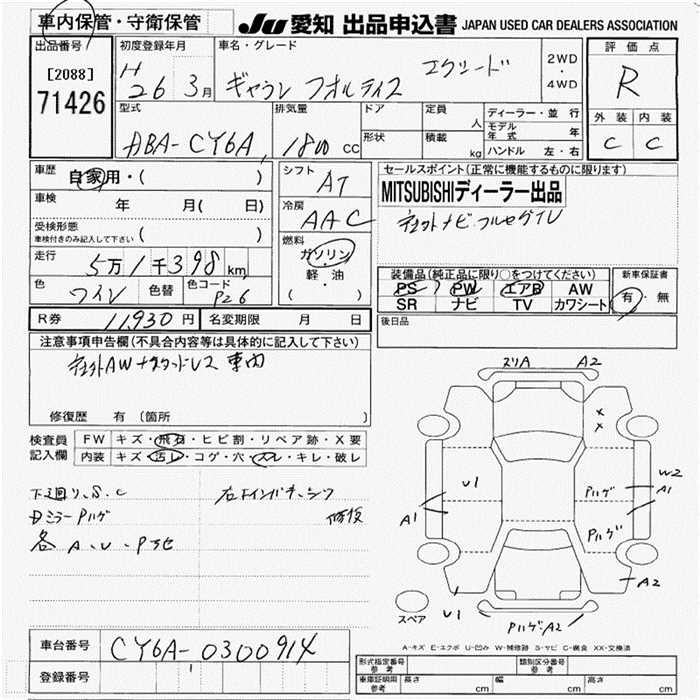 車内保管・守衛保管
JU 愛知 出品申込書 JAPAN USED CAR DEALERS ASSOCIATION
出品番号 初度登録年月 車名・グレード 評価点
[2088] H 26 3月 ギャラン フォルティス エクシード 2WD・4WD R
71426
型式 排気量 ドア 定員 人 ディーラー・並行
DBA-CY6A 1800 cc 形状 積載 kg モデル年式 年
ハンドル 左・右
外装 内装
C C
車歴 自家用・( )
シフト AT
セールスポイント(正常に機能するものに限ります)
MITSUBISHIディーラー出品
車検 年 月( 日)
冷房 AAC
ナビ フルセグTV
受検形態
車検付きのみ記入して下さい ( )
燃料 ガソリン・軽・油・( )
走行 5万1千398km
装備品(純正品に限り○をつけてください) 新車保証書
PS PW エアB AW 有・無
SR ナビ TV カワシート
色 ワイン 色替 色コード P26
R券 11,930円 名変期限 月 日
後日品
注意事項申告欄(不具合内容等は具体的に記入して下さい)
車内
修復歴 有 (箇所 )
検査員記入欄
FW キズ・飛石・ヒビ割・リペア跡・X要
内装 キズ・汚レ・コゲ・穴・スレ・キレ・破レ
下廻り、S、C
ミラーPハゲ 修復
各A、U、P
スリA A2
X X
U1 Pハゲ W2 A1
A1 Pハゲ
U1 A2
スペア Pハゲ・A2
A-キズ E-エクボ U-凹み W-補修跡 S-サビ C-腐食 XX-交換済
車台番号 CY6A-0300914
登録番号
形式指定番号 参考 類別区分番号 参考
車庫証明用 参考 長さ cm 幅 cm 高さ cm